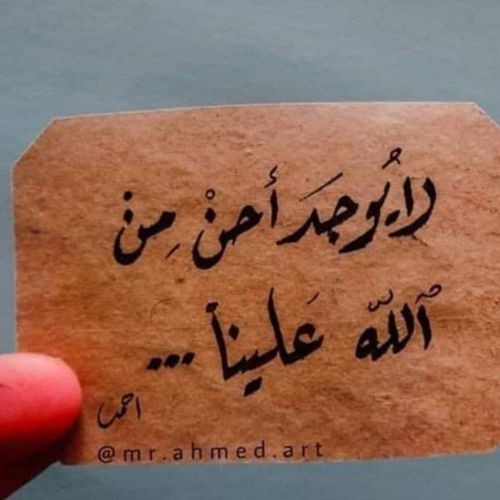 لا يُوجَد أحنْ مِنْ
ٱللّه عَلينا ...
احمد
@mr.ahmed.art